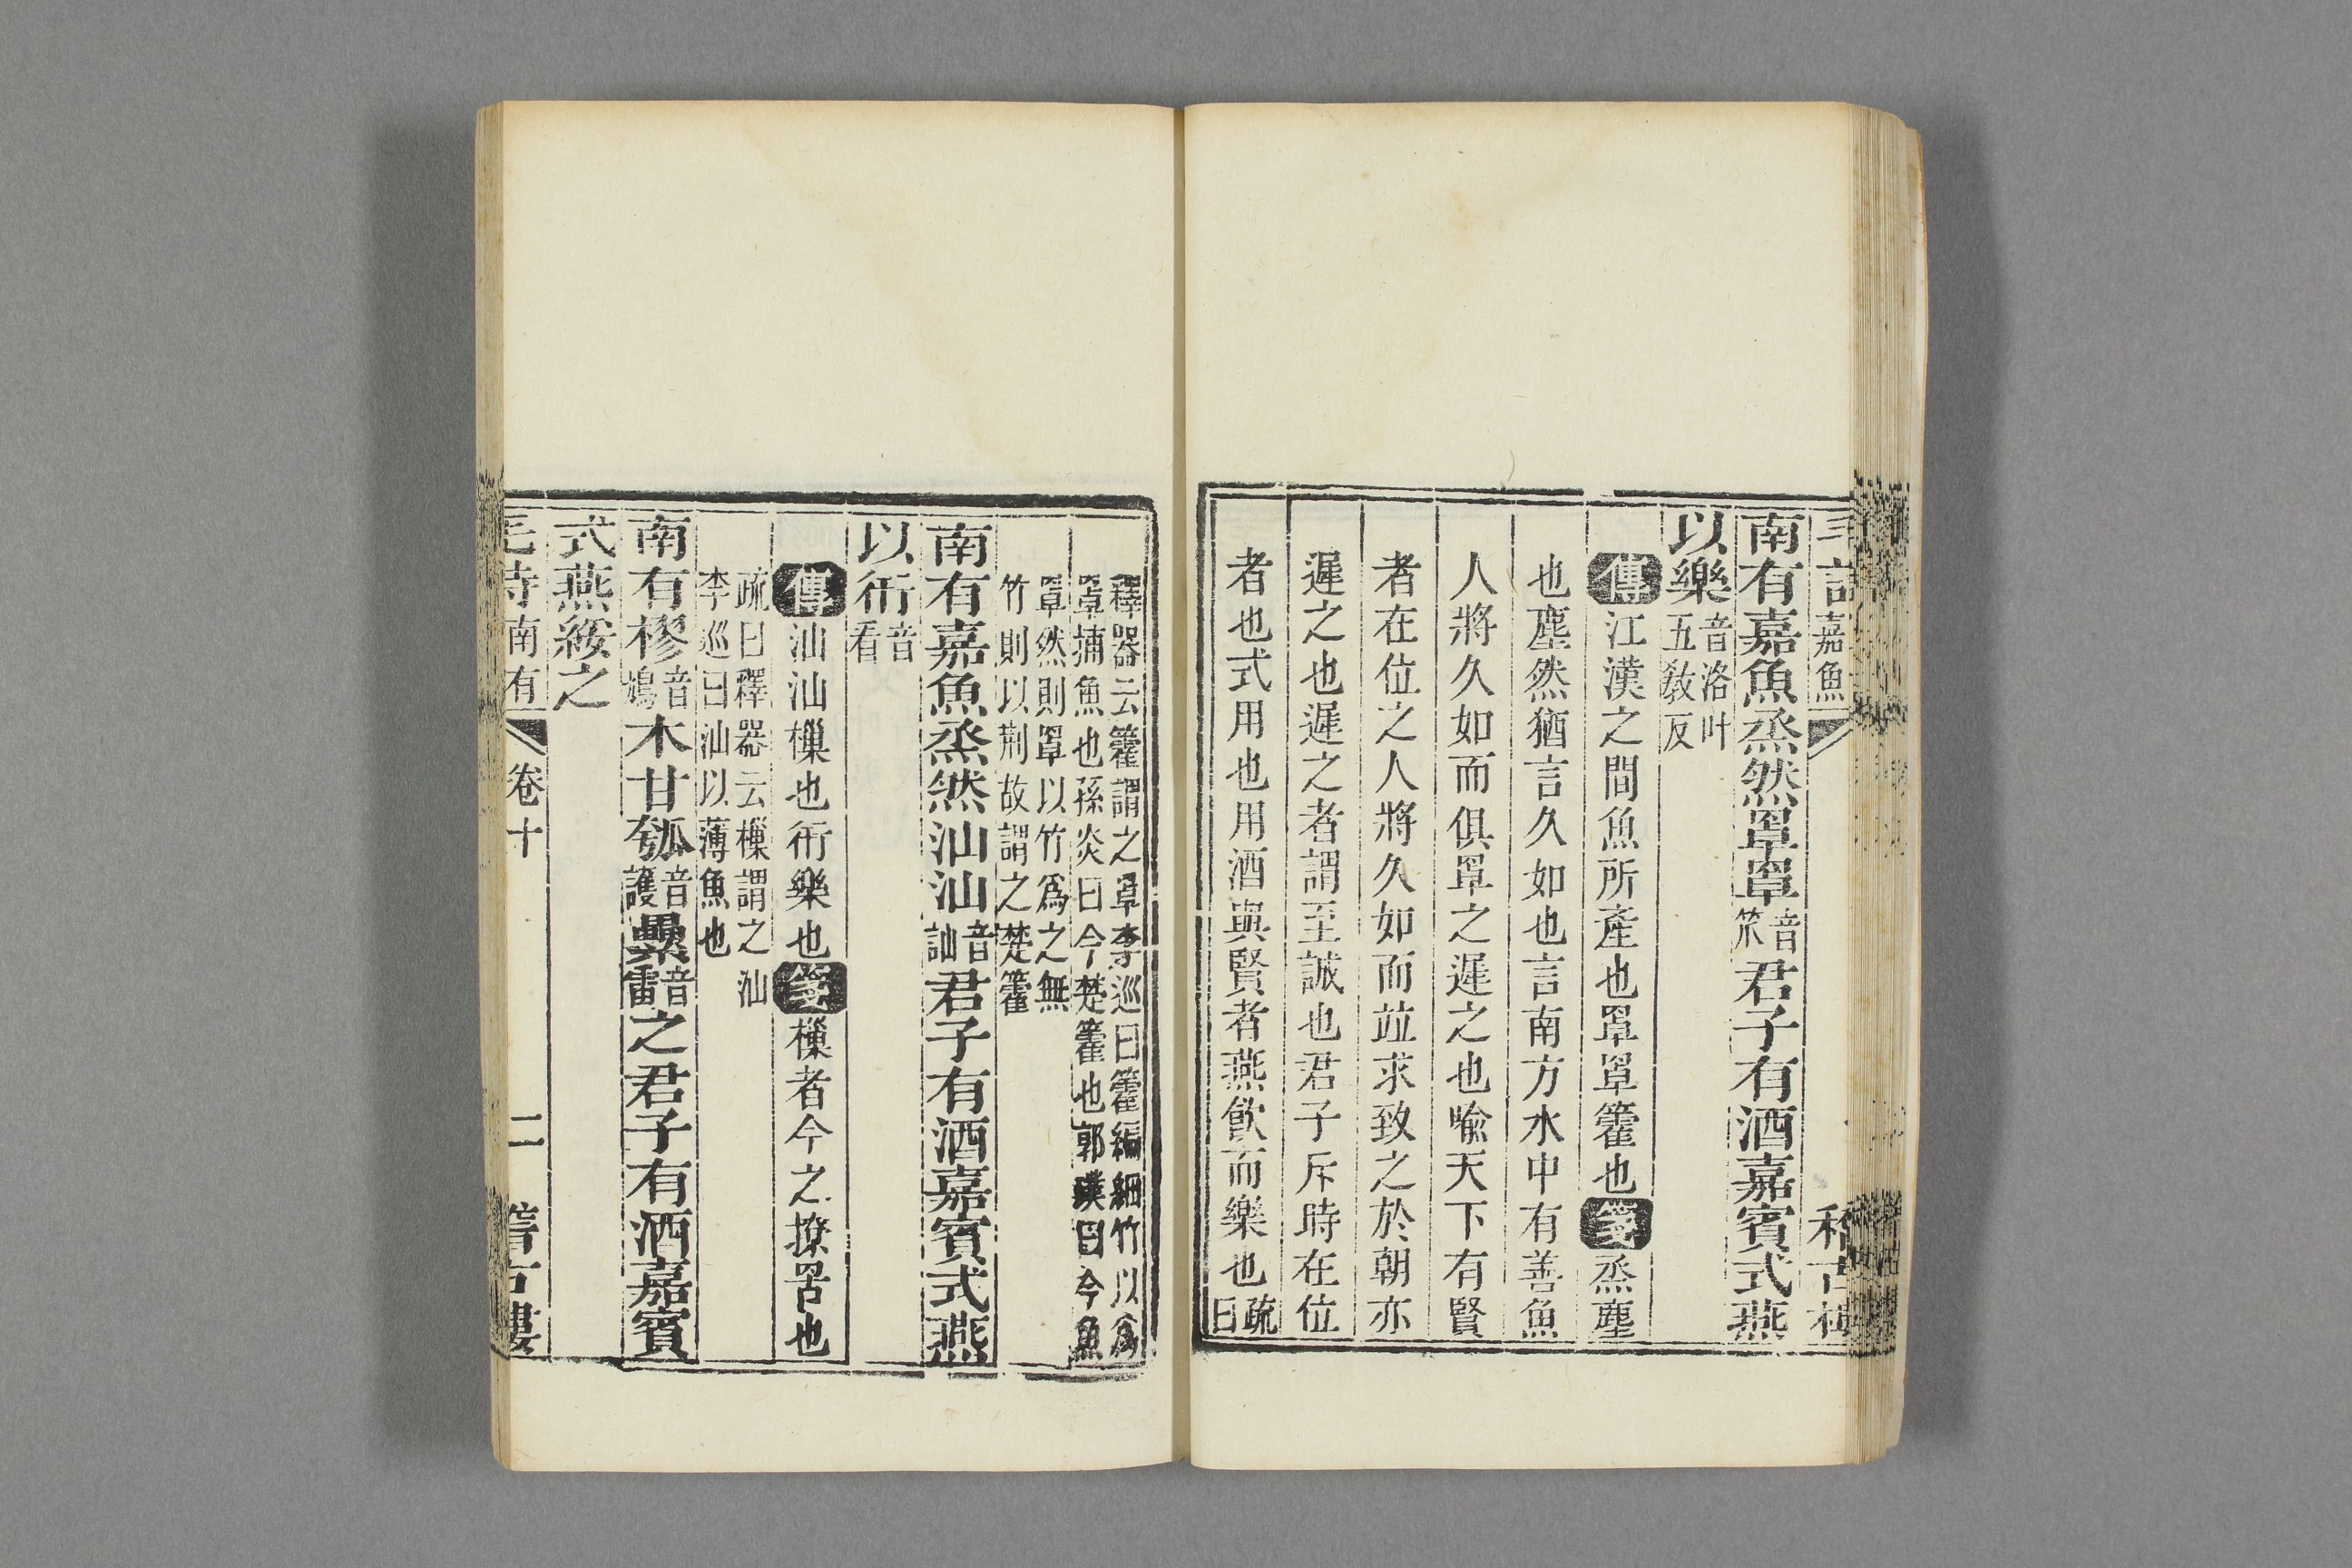 嘉魚
南有嘉魚烝然罩罩音笊君子有酒嘉賓式燕
以樂音洛叶五敎反
傳江漢之間魚所產也罩罩籗也箋烝塵
也塵然猶言久如也言南方水中有善魚
人將久如而俱罩之遲之也喻天下有賢
者在位之人將久如而竝求致之於朝亦
遲之也遲之者謂至誠也君子斥時在位
者也式用也用酒與賢者燕飮而樂也疏曰
釋器云籗謂之罩李巡曰籗編細竹以爲
罩捕魚也孫炎曰今楚籗也郭璞曰今魚
罩然則罩以竹爲之無
竹則以荆故謂之楚籗
南有嘉魚烝然汕汕音訕君子有酒嘉賓式燕
以衎音看
傳汕汕樔也衎樂也箋樔者今之撩罟也
疏曰釋器云樔謂之汕
李巡曰汕以薄魚也
南有樛音鳩木甘瓠音護纍音雷之君子有酒嘉賓
式燕綏之
毛詩南有 卷十 二 㫺古樓